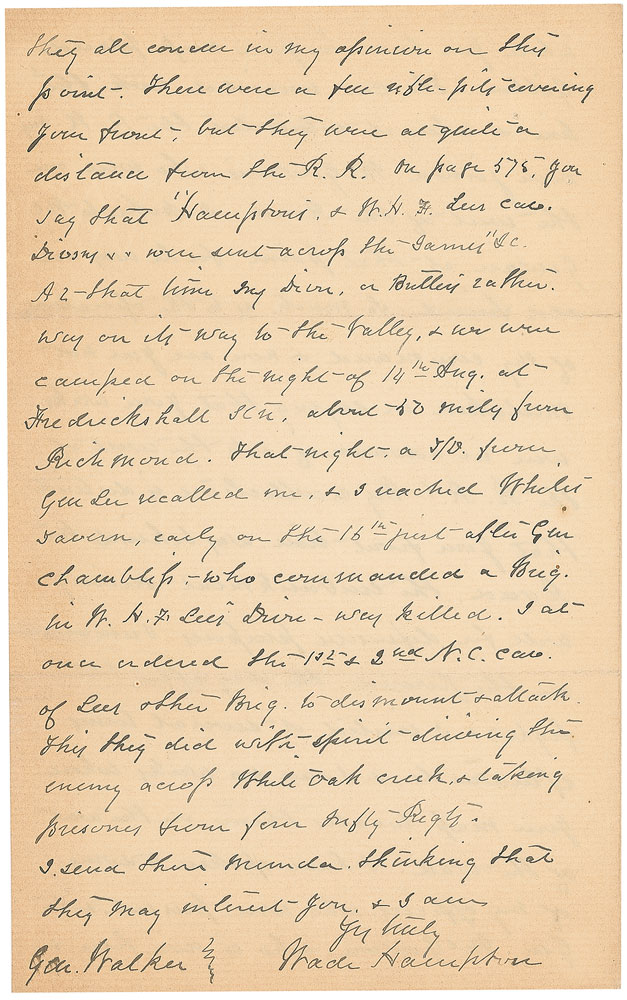 they all concur in my opinion on this
point. There were a few rifle-pits covering
your front, but they were at quite a
distance from the R. R. On page 575, you
say that "Hampton's, & W. H. F. Lees cav.
Divsns x x were sent across the James" &c.
At that time my Divn, or Butlers rather,
was on its way to the Valley, & we were
camped on the night of 14th Aug. at
Fredrickshall Stn, about 50 miles from
Richmond. That night, a T/D. from
Gen Lee recalled me, & I reached White's
Tavern, early on the 16th just after Gen
Chambliss, - who commanded a Brig.
in W. H. F. Lees Divn - was killed. I at
once ordered the 1st & 2nd N. C. cav.
of Lees other Brig. to dismount & attack.
This they did with spirit driving the
enemy across White Oak creek, & taking
prisoners from four Infty Regts.
I send these memda. thinking that
they may interest you, & I am
Yrs truly
Gen. Walker Wade Hampton